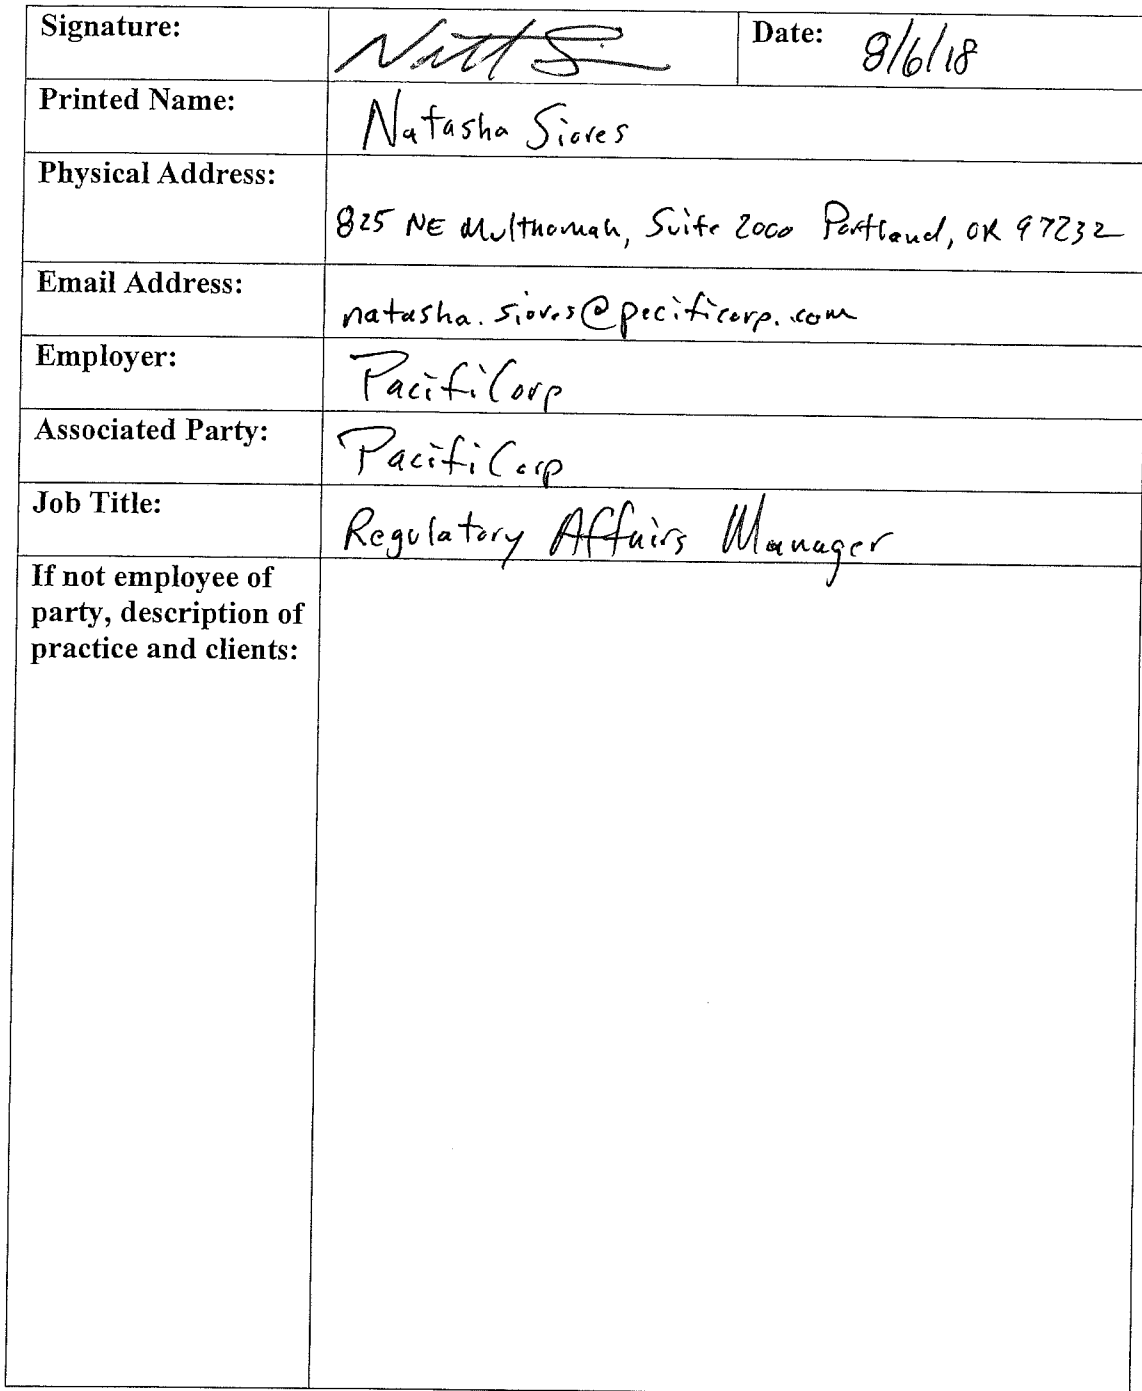 Signature: Date: 8/6/18
Printed Name: Natasha Siores
Physical Address:
825 NE Multnomah, Suite 2000 Portland, OR 97232
Email Address:
natasha.siores@pacificorp.com
Employer: PacifiCorp
Associated Party: PacifiCorp
Job Title: Regulatory Affairs Manager
If not employee of
party, description of
practice and clients: